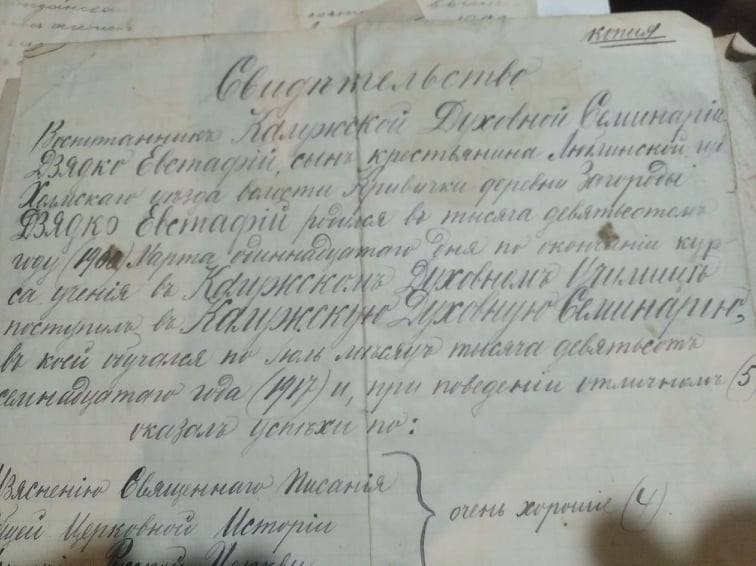 копия
Свидѣтельство
Воспитанникъ Калужской Духовной Семинаріи
Дзядко Евстафій, сынъ крестьянина Люблинской
Холмскаго уѣзда волости Кривички деревни Загороды
Дзядко Евстафій родился въ тысяча девятьсотомъ
году (1900) Марта одиннадцатаго дня по окончаніи кур-
са ученія въ Калужскомъ Духовномъ Училищѣ
поступилъ въ Калужскую Духовную Семинарію,
въ коей обучался по Іюль мѣсяцъ тысяча девятьсотъ
семнадцатаго года (1917) и, при поведеніи отличномъ (5
оказалъ успѣхи по:
Изясненію Священнаго Писанія
бщей Церковной Исторіи
Русской Церкви
очень хорошіе (4).